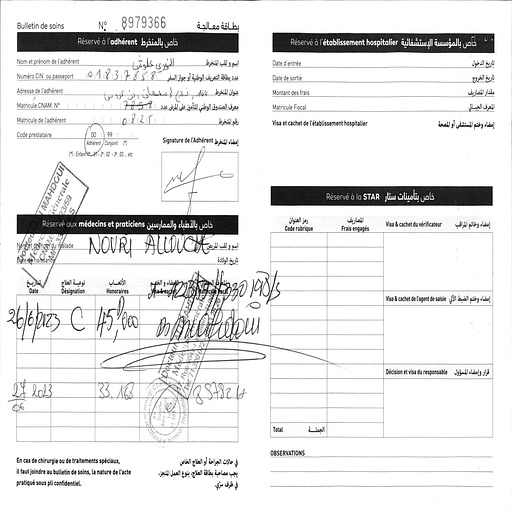 Bulletin de soins N° 8979366 بطاقة معالجة
Réservé à l'adhérent خاص بالمنخرط
Nom et prénom de l'adhérent إسم و لقب المنخرط
Numéro CIN ou passeport 01837858 عدد بطاقة التعريف الوطنية أو جواز السفر
Adresse de l'adhérent عنوان المنخرط
Matricule CNAM N°
Matricule de l'adhérent 0825 رقم المنخرط
Code prestataire 00 99
Adhérent Conjoint
Signature de l'Adhérent إمضاء المنخرط
Réservé aux médecins et praticiens خاص بالأطباء والممارسين
NOURI ALLOUCH
تاريخ الولادة
التاريخ Date
نوعية العلاج Désignation
الأتعاب Honoraires
26/6/2023 C 45,000
27/06 2023 33.163
En cas de chirurgie ou de traitements spéciaux,
il faut joindre au bulletin de soins, la nature de l'acte
pratiqué sous pli confidentiel.
في حالات الجراحة أو العلاج الخاص
يجب مصاحبة بطاقة العلاج، بنوع العمل المنجز،
في ظرف سري.
Réservé à l'établissement hospitalier خاص بالمؤسسة الإستشفائية
Date d'entrée تاريخ الدخول
Date de sortie تاريخ الخروج
Montant des frais مقدار المصاريف
Matricule Fiscal المعرف الجبائي
Visa et cachet de l'établissement hospitalier إمضاء وختم المستشفى أو المصحة
Réservé à la STAR خاص بتأمينات ستار
رمز العنوان Code rubrique
المصاريف Frais engagés
Visa & cachet du vérificateur إمضاء وخاتم المراقب
Visa & cachet de l'agent de saisie
Décision et visa du responsable قرار وإمضاء المسؤول
Total الجملة
OBSERVATIONS